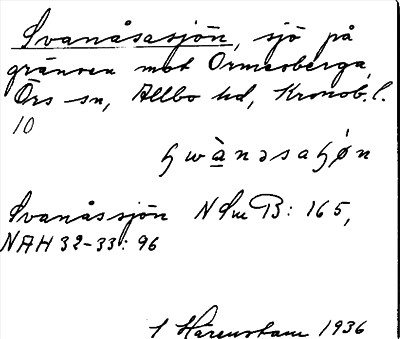 Svanåsasjön, sjö på
gränsen mot Ormesberga,
Örs sn, Allbo hd, Kronob. l.
10
Svanåssjön NSmB: 165,
NAH 32-33: 96
Härenstam 1936